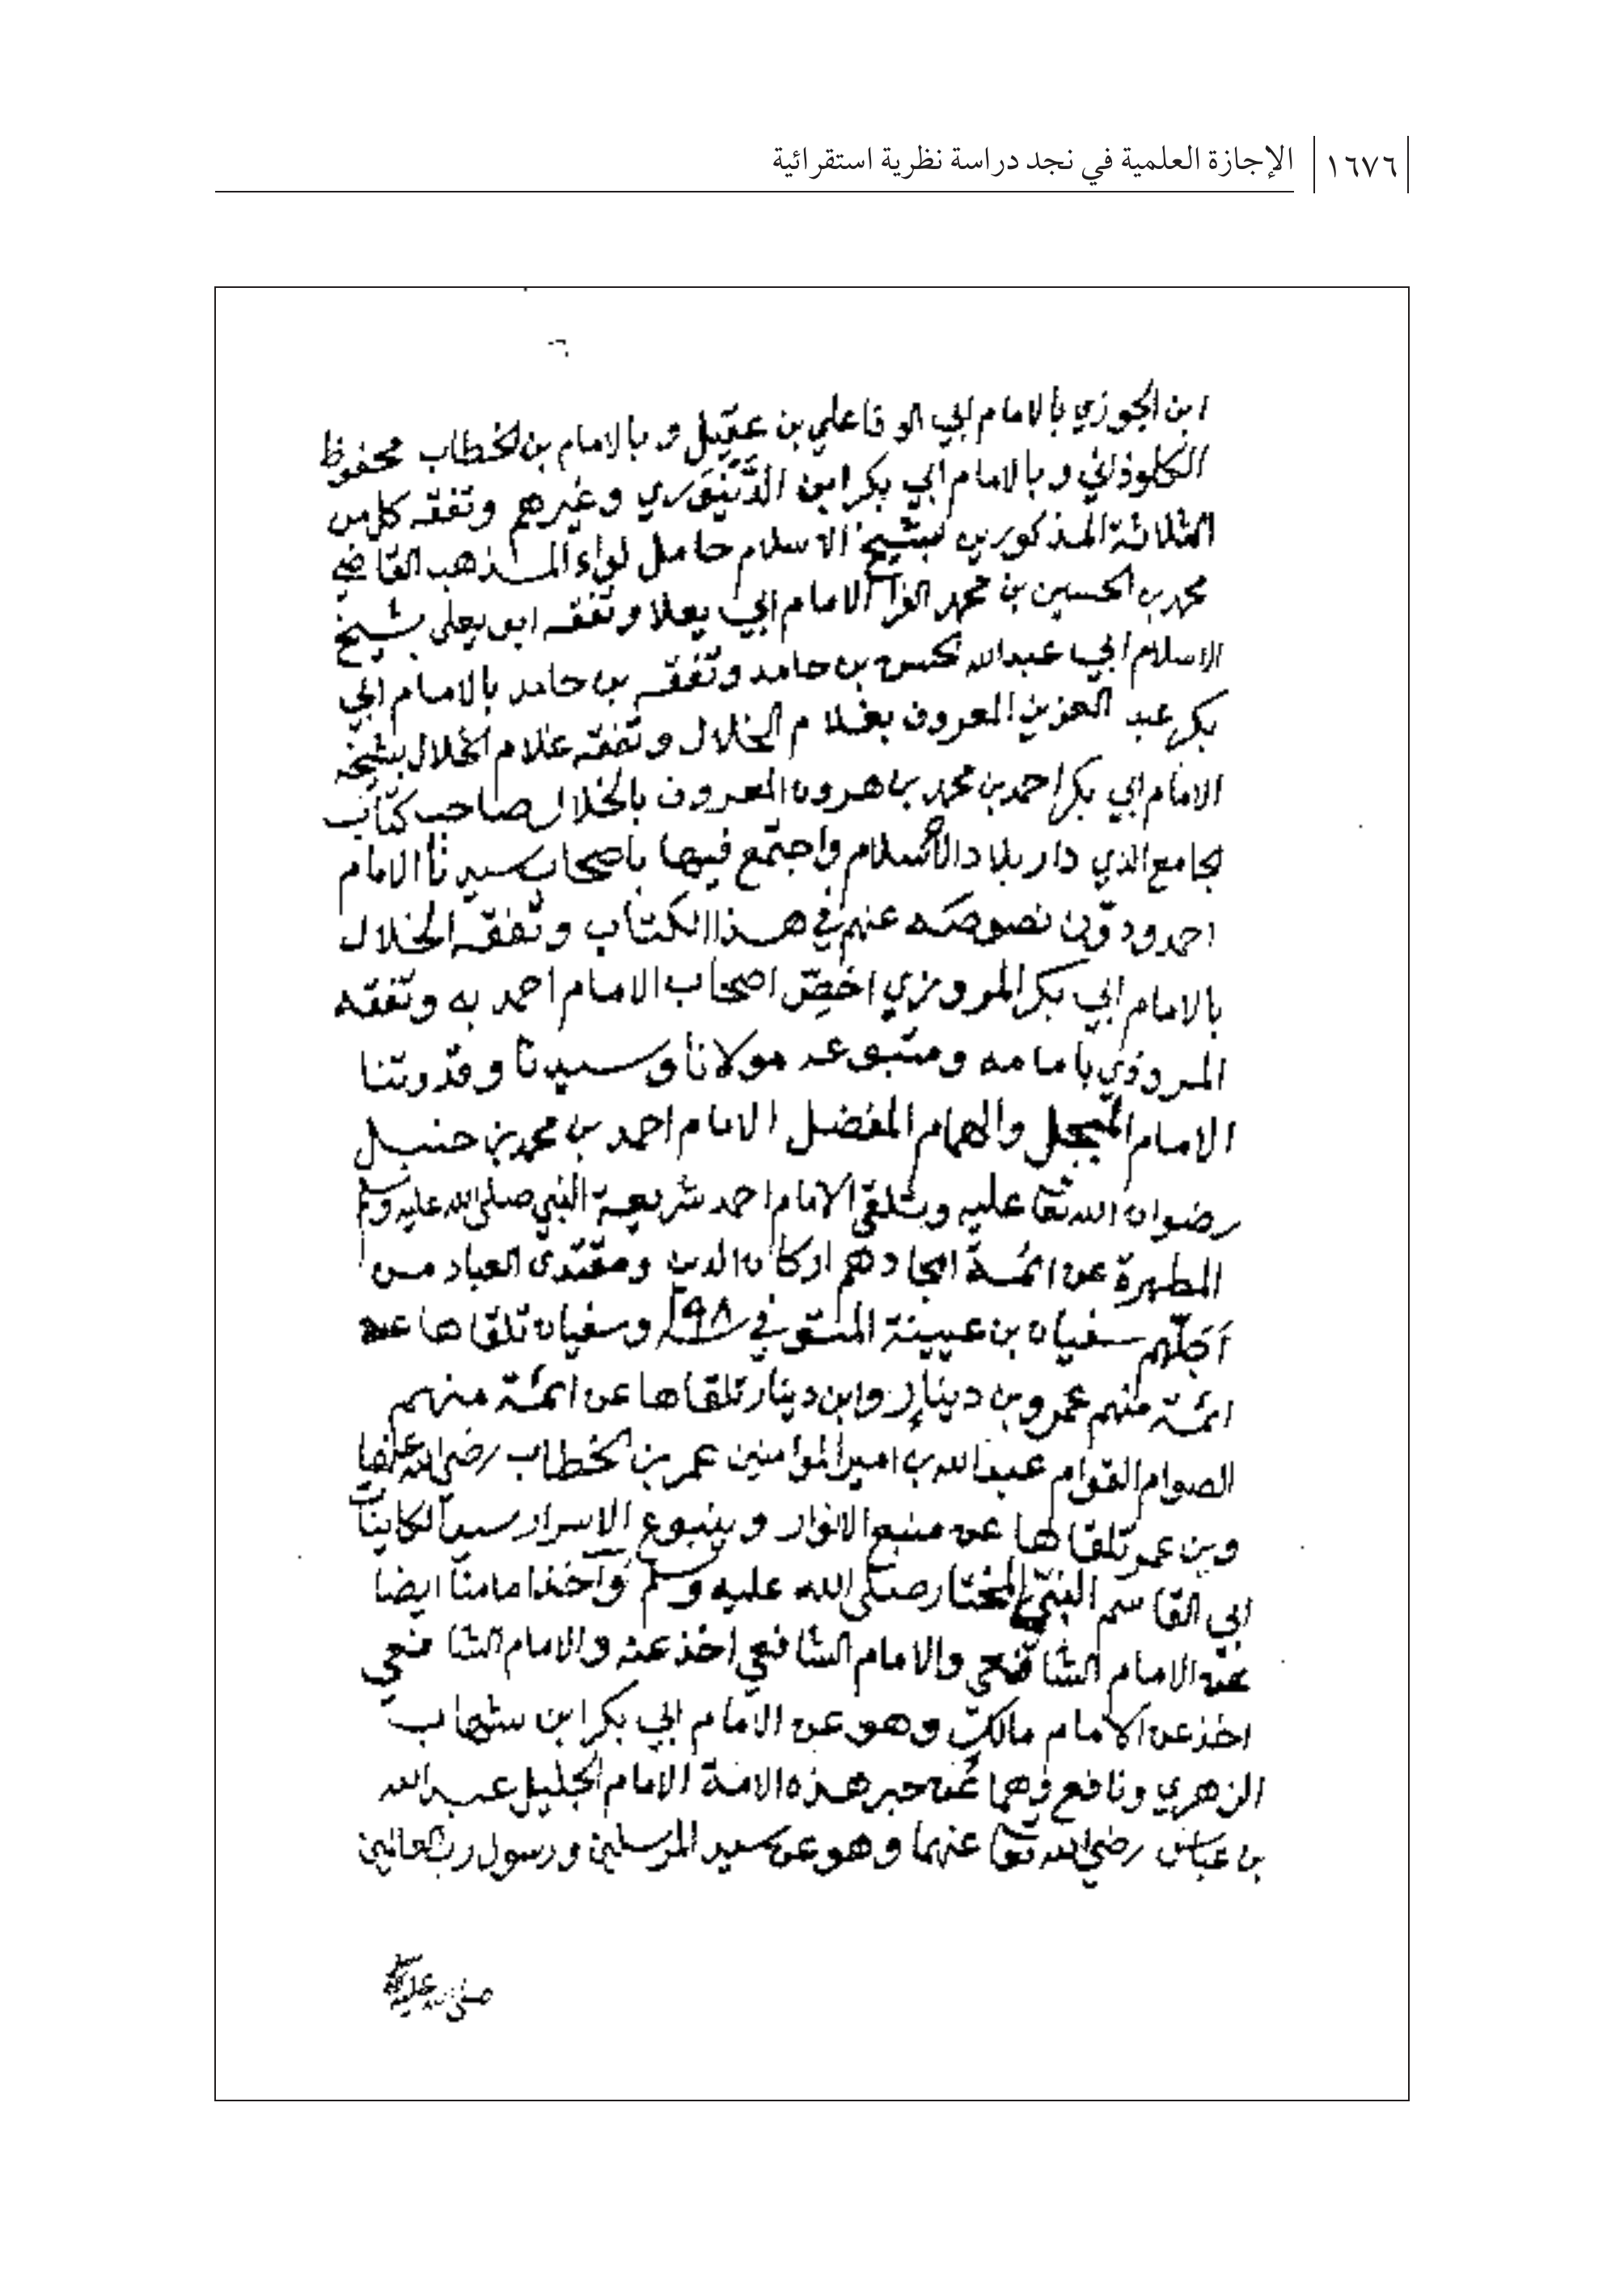 ١٦٧٦ الإجازة العلمية في نجد دراسة نظرية استقرائية
ابن الجوزي بالامام ابي الوفا علي بن عقيل وبالامام بن لخطاب محفوظ
الكلوذاني وبالامام ابي بكر ابن الدينوري وغيرهم وتفقه كل من
الثلاثة المذكورين بشيخ الاسلام حامل لواء المذهب القاضي
محمد بن الحسين بن محمد الفرا الامام ابي يعلا وتفقه ابو يعلى بشيخ
الاسلام ابي عبدالله لحسن بن حامد وتفقه بن حامد بالامام ابي
بكر عبد العزيز المعروف بغلام الخلال وتفقه غلام الخلال بشيخه
الامام ابي بكر احمد بن محمد بن هرون المعروف بالخلال صاحب كتاب
لجامع الذي دار بلاد الاسلام واجتمع فيها باصحاب سيدنا الامام
احمد ودوّن نصوصه عنهم في هذا الكتاب وتفقه الخلال
بالامام ابي بكر المروزي اخصّ اصحاب الامام احمد به وتفقه
المروذي بامامه ومتبوعه مولانا وسيدنا وقدوتنا
الامام المبجل والهمام المفضل الامام احمد بن محمد بن حنبل
رضوان الله تعا عليه وتلقى الامام احمد شريعة النبي صلى الله عليه وسلم
المطهرة عن ائمة امجاد هم اركان الدين ومقتدى العباد من
أجلّهم سفيان بن عيينة المتوفي في سنة ١٩٨ وسفيان تلقاها عن
ائمة منهم عمرو بن دينار وابن دينار تلقاها عن ائمة منهم
الصوام القوام عبد الله بن امير الموامنين عمر بن لخطاب رضي الله عنهما
وبن عمر تلقاها عن منبع الانوار وينبوع الاسرار سيد الكاينات
ابي القاسم النبيّ المختار صلى الله عليه وسلم وآخذ امامنا ايضا
عن الامام الشافعي والامام الشافعي اخذ عنه والامام الشافعي
اخذ عن الامام مالك وهو عن الامام ابي بكر ابن شهاب
الزهري ونافع وهما عن حبر هذه الامة الامام الجليل عبد الله
بن عباس رضي الله تعا عنهما وهو عن سيد المرسلين ورسول رب العالمين
صلى الله عليه وسلم